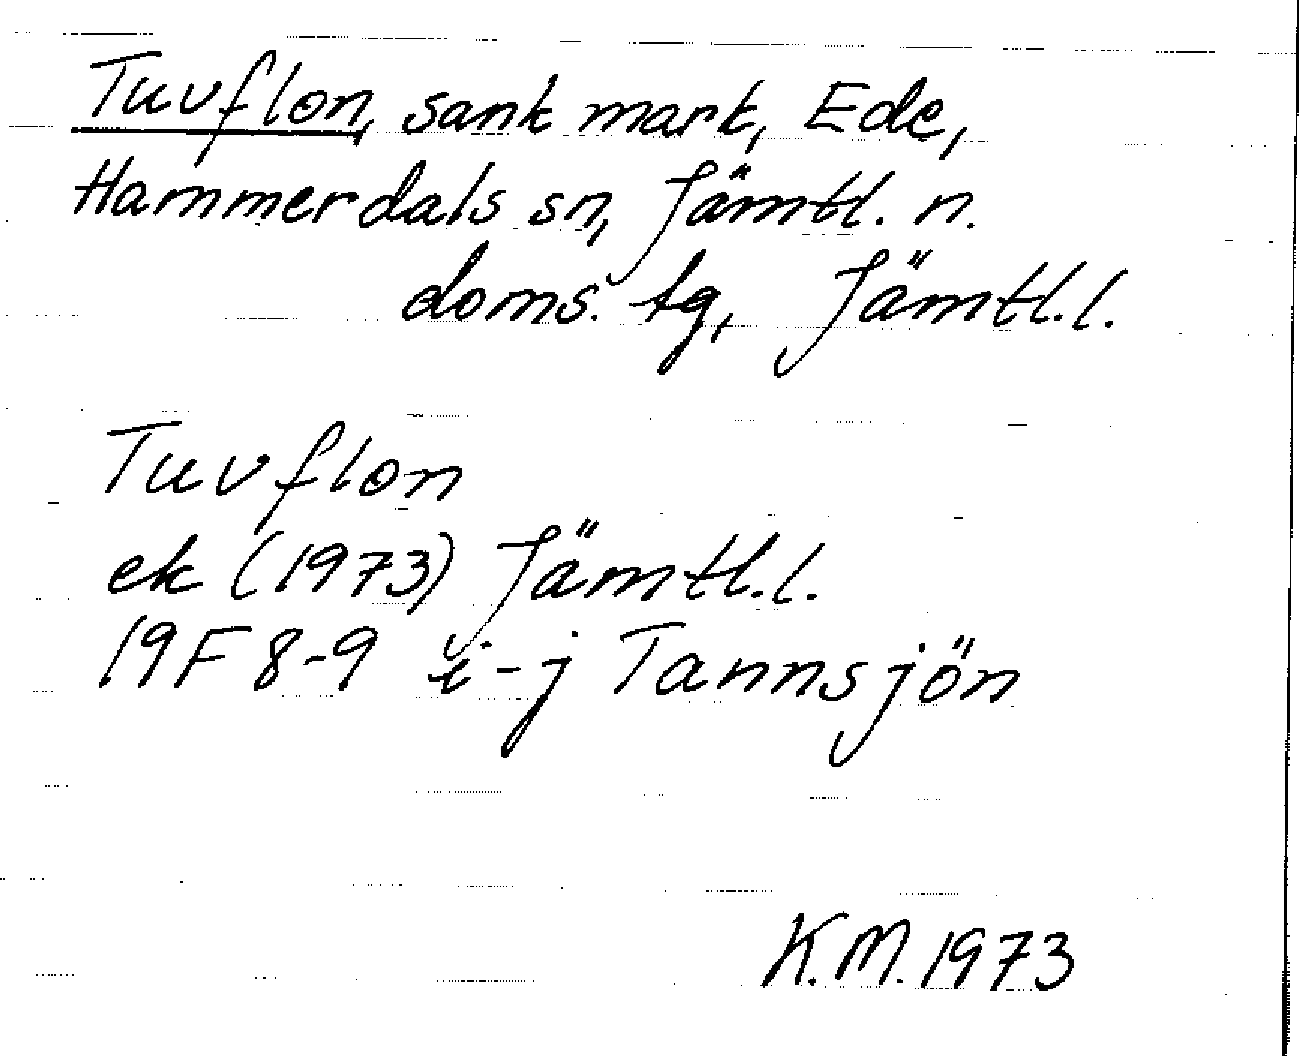 Tuvflon, sank mark, Ede,
Hammerdals sn, Jämtl. n.
doms. tg, Jämtl. l.
Tuvflon
ek (1973) Jämtl. l.
19F 8-9 i-j Tannsjön
K.M. 1973